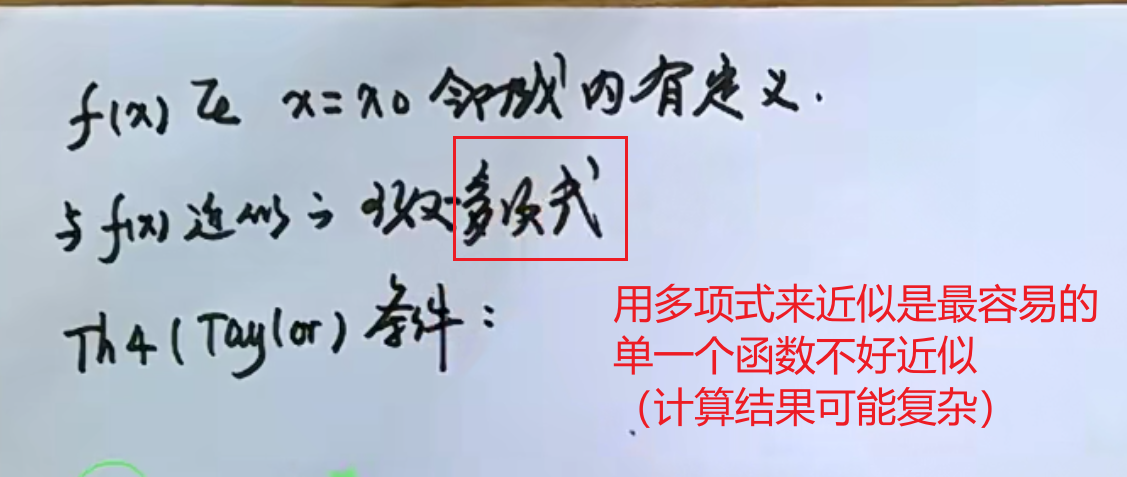 f(x)在 x=x0 邻域内有定义.
与f(x)近似之 多项式
Th4(Taylor)条件：
用多项式来近似是最容易的
单一个函数不好近似
（计算结果可能复杂）